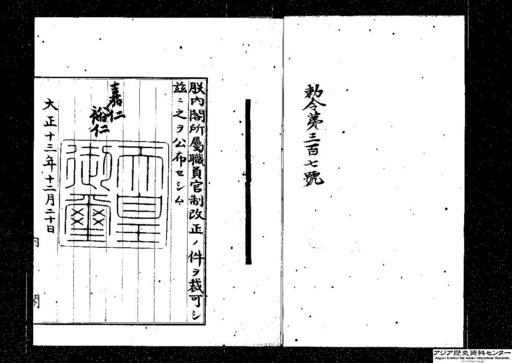 勅令第三百七號
朕内閣所屬職員官制改正ノ件ヲ裁可シ
茲ニ之ヲ公布セシム
嘉仁
裕仁
天皇
御璽
大正十三年十二月二十日
内閣
アジア歴史資料センター
Japan Center for Asian Historical Records